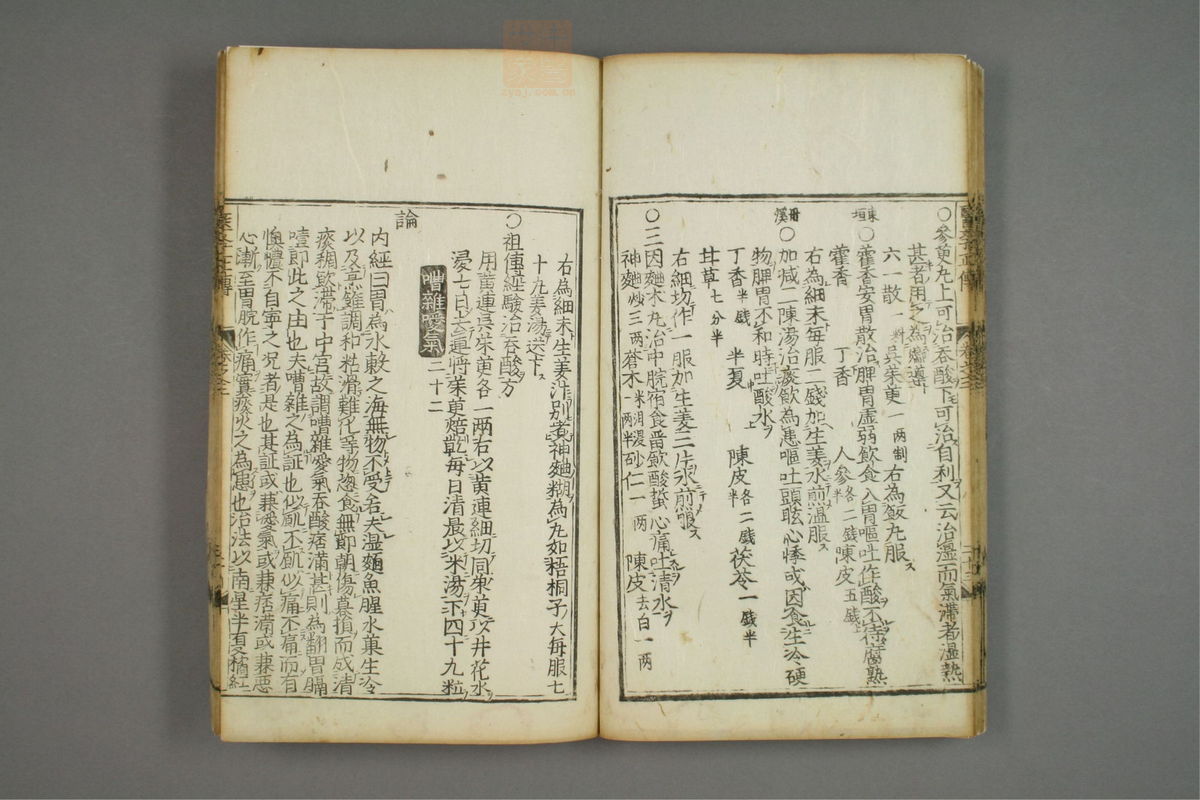 〇參黄丸上可治吞酸下可治自利又云治濕而氣滯者濕熱
甚者用之為嚮導
六一散一料吳茱萸一兩制右為飯丸服
東垣〇藿香安胃散治脾胃虚弱飲食入胃嘔吐作酸不待腐熟
藿香 丁香 人參各二錢半陳皮五錢
右為細末每服二錢加生姜水煎溫服
丹溪〇加減二陳湯治痰飲為患嘔吐頭眩心悸或因食生冷硬
物脾胃不和時吐酸水
丁香半錢 半夏 陳皮各二錢半茯苓一錢半
甘草七分半
右細切作一服加生姜三片水煎服
〇三因麯术丸治中脘宿食畱飲酸蜇心痛吐清水
神麯炒三兩蒼术米泔浸一兩半砂仁一兩 陳皮去白一兩
右為細末生姜汁別煮神麯糊為丸如梧桐子大每服七
十丸姜湯送下
〇祖傳經驗治吞酸方
用黄連吳茱萸各一兩右以黄連細切同茱萸以井花水
浸七日去連將茱萸焙乾每日清晨以米湯下四十九粒
嘈雜噯氣二十二
論
内經曰胃為水穀之海無物不受若夫濕麵魚腥水菓生冷
以及烹飪調和粘滑難化等物恣食無節朝傷暮損而成清
痰稠飲滯于中宮故謂嘈雜噯氣吞酸痞滿甚則為翻胃膈
噎即此之由也夫嘈雜之為証也似飢不飢似痛不痛而有
懊憹不自寧之况者是也其証或兼噯氣或兼痞滿或兼惡
心漸至胃脘作痛實痰火之為患也治法以南星半夏橘紅